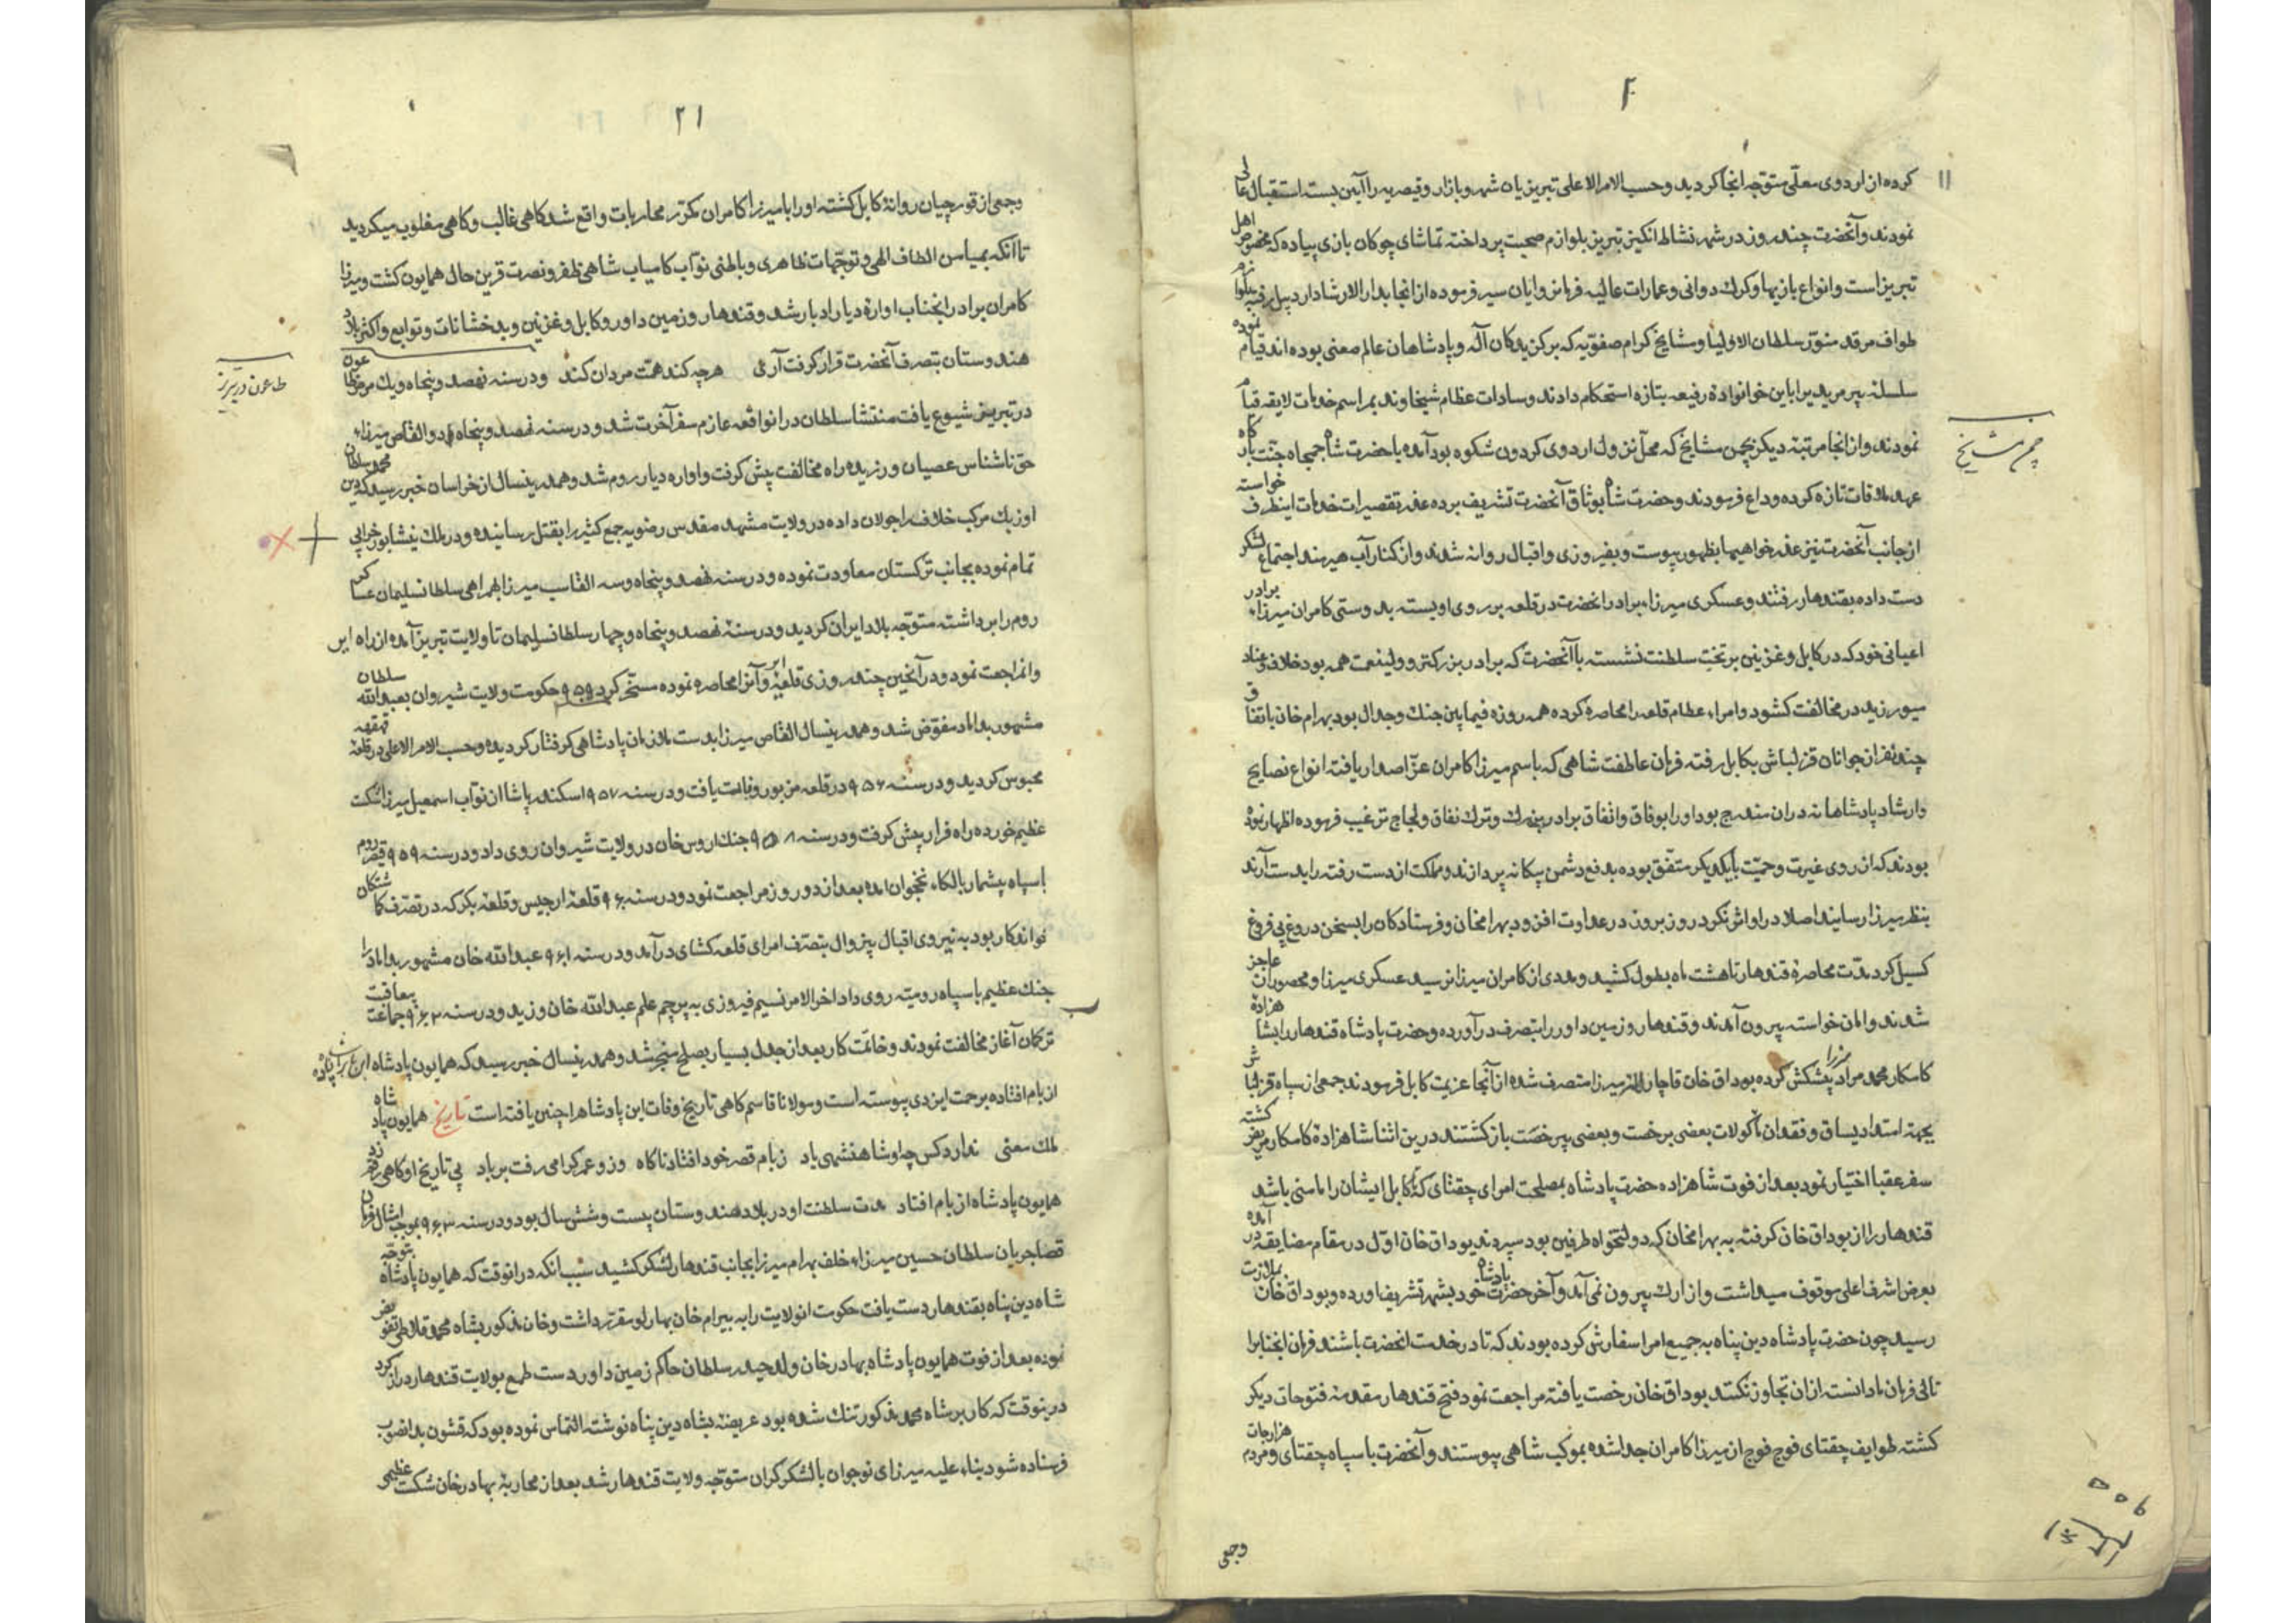 ۲۰
کرده از اردوی معلّی متوجّه آنجا کردید و حسب الامر الاعلی تبریزیان شهر و بازار و قیصریه را آیین بسته استقبال عالی
نمودند و آنحضرت چند روز در شهر نشاط انکیز تبریز بلوازم صحبت پرداخته تماشای چوکان بازی پیاده که مخصوص اهل
تبریز است و انواع بازیها و کرک دوانی و عمارات عالیه فرمانروایان سیر فرموده از انجا بدار الارشاد اردبیل رفته بلوازم
طواف مرقد منوّر سلطان الاولیا و مشایخ کرام صفویّه که برکزیدکان آله و پادشاهان عالم معنی بوده اند قیام نموده
سلسله پیر مریدیرا باین خوانواده رفیعه بتازه استحکام دادند و سادات عظام شیخاوند بمراسم خدمات لایقه قیام
نمودند و از انجا مرتبه دیکر بچمن مشایخ که محل نزول اردوی کردون شکوه بود آمده با حضرت شاه جمجاه جنّت بارکاه
چمن مشایخ
عهد ملاقات تازه کرده وداع فرمودند و حضرت شاه بوثاق آنحضرت تشریف برده عذر تقصیرات خدمات اینطرف خواسته
از جانب آنحضرت نیز عذر خواهیها بظهور پیوست و بفیروزی و اقبال روانه شدند و از کنار آب هیرمند اجتماع لشکر
دست داده بقندهار رفتند و عسکری میرزاء برادر انحضرت در قلعه بر روی او بسته بدوستی کامران میرزاء برادر
اعیانی خود که در کابل و غزنین بر تخت سلطنت نشسته با آنحضرت که برادر بزرکتر و ولینعمت همه بود خلاف و عناد
میورزید در مخالفت کشود و امراء عظام قلعه را محاصره کرده همه روزه فیما بین جنك و جدال بود بهرام خان باتفاق
چند نفر از جوانان قزلباش بکابل رفته فرمان عاطفت شاهی که باسم میرزا کامران عزّ اصدار یافته انواع نصایح
و ارشاد پادشاهانه در ان مندرج بود و او را بوفاق و اتفاق برادر بزرك و ترك نفاق و لجاج ترغیب فرموده اظهار نموده
بودند که از روی غیرت و حمیّت با یکدیکر متّفق بوده بدفع دشمن بیکانه پردازند و مملکت از دست رفته را بدست آرند
بنظر میرزا رسانید اصلا در او اثر نکرد روز بروز در عداوت افزود بهرامخان و فرستادکان را بسخن دروغ بی فروغ
کسیل کرد مدّت محاصرۀ قندهار تا هشت ماه بطول کشید و مددی از کامران میرزا نرسید عسکری میرزا و محصوران عاجز
شدند و امان خواسته بیرون آمدند و قندهار و زمین داور را بتصرف درآورده و حضرت پادشاه قندهار را بشاهزاده
کامکار محمد مراد میرزا پیشکش کرده بوداق خان قاجار لله میرزا متصرف شده از آنجا عزیمت کابل فرمودند جمعی از سپاه قزلباش
بجهة امتداد یساق و فقدان مأکولات بعضی برخصت و بعضی بیرخصت بازکشتند درین اثنا شاهزاده کامکار مریض کشته
سفر عقبا اختیار نمود بعد از فوت شاهزاده حضرت پادشاه بمصلحت امرای چقتای که تا کابل ایشان را مامنی باشد
قندهار را از بوداق خان کرفته به بهرامخان که دولتخواه طرفین بود سپردند بوداق خان اوّل در مقام مضایقه درآمده
بعرض اشرف اعلی موقوف میداشت و از ارك بیرون نمی آمد و آخر حضرت پادشاه خود بشهر تشریف آورده و بوداق خان بملازمت
رسید چون حضرت پادشاه دین پناه به جمیع امرا سفارش کرده بودند که تا در خدمت انحضرت باشند فرمان انجنابرا
تالی فرمان ما دانسته از ان تجاوز نکنند بوداق خان رخصت یافته مراجعت نمود فتح قندهار مقدمۀ فتوحات دیکر
کشته طوایف چقتای فوج فوج از میرزا کامران جدا شده بموکب شاهی پیوستند و آنحضرت با سپاه چقتای و مردم هزارجات
وجمعی
۲۱
وجمعی از قورچیان روانۀ کابل کشته او را با میرزا کامران مکرّر محاربات واقع شد کاهی غالب و کاهی مغلوب میکردید
تا آنکه بمیامن الطاف الهی و توجّهات ظاهری و باطنی نوّاب کامیاب شاهی ظفر و نصرت قرین حال همایون کشت و میرزا
کامران برادر انجناب اوارۀ دیار ادبار شد و قندهار و زمین داور و کابل و غزنین و بدخشانات و توابع و اکثر بلاد
هندوستان بتصرف آنحضرت قرار کرفت آری هرچه کند همّت مردان کند و در سنه نهصد و پنجاه و یك مرض طاعون
طاعون در تبریز
در تبریز شیوع یافت منتشا سلطان در انواقعه عازم سفر آخرت شد و در سنه نهصد و پنجاه و دو القاص میرزاء
حق ناشناس عصیان ورزیده راه مخالفت پیش کرفت و اواره دیار روم شد و همدرینسال از خراسان خبر رسید که دین محمد سلطان
اوزبك مرکب خلاف را جولان داده در ولایت مشهد مقدس رضویه جمع کثیر را بقتل رسانیده و در ملك نیشابور خرابی
تمام نموده بجانب ترکستان معاودت نموده و در سنه نهصد و پنجاه و سه القاسب میرزا بهمراهی سلطانسلیمان عساکر
روم را برداشته متوّجه بلاد ایران کردید و در سنۀ نهصد و پنجاه و چهار سلطانسلیمان تا ولایت تبریز آمده از راه
وانمراجعت نمود و در آنحین چند روزی قلعۀ وانرا محاصره نموده مسخّر کرد ۹۵۵ حکومت ولایت شیروان بعبدالله سلطان
مشهور بداماد مفوّض شد و همدرینسال القاص میرزا بدست ملازمان پادشاهی کرفتار کردیده و حسب الامر الاعلی در قلعۀ قهقهه
محبوس کردید و در سنه ۹۵۶ در قلعه مزبور وفات یافت و در سنه ۹۵۷ اسکندر پاشا از نوّاب اسمعیل میرزا شکست
عظیم خورده راه فرار پیش کرفت و در سنه ۹۵۸ جنك اروس خان در ولایت شیروان روی داد و در سنه ۹۵۹ قیصر روم
با سپاه بیشمار بالکاء نخجوان امده بعد از دو روز مراجعت نمود و در سنه ۹۶۰ قلعۀ ارجیس و قلعۀ بکر که در تصرّف کماشتکان
خواندکار بود به نیروی اقبال بیزوال بتصرّف امرای قلعه کشای درآمد و در سنه ۹۶۱ عبدالله خان مشهور بداماد را
جنك عظیم با سپاه رومیّه روی داد اخر الامر نسیم فیروزی به پرچم علم عبدالله خان وزید و در سنه ۹۶۲ جماعت
ترکمان آغاز مخالفت نمودند و خاتمت کار بعد از جدل بسیار بصلح منجر شد و همدرینسال خبر رسید که همایون پادشاه
از بام افتاده برحمت ایزدی پیوسته است و مولانا قاسم کاهی تاریخ وفات این پادشاهرا چنین یافته است تاریخ همایون پادشاه
ملك معنی ندارد کس چو او شاهنشهی یاد ز بام قصر خود افتاد ناکاه وز و عمر کرامی رفت بر باد پی تاریخ او کاهی رقم زد
همایون پادشاه از بام افتاد مدت سلطنت او در بلاد هندوستان بیست و شش سال بود و در سنه ۹۶۳ بموجب امثال فرمان
قضا جریان سلطان حسین میرزاء خلف بهرام میرزا بجانب قندهار لشکر کشید سبب انکه در انوقت که همایون پادشاه بتوجّه
شاه دین پناه بقندهار دست یافت حکومت انولایت را به بیرام خان بهارلو مقرّر داشت و خان مذکور بشاه محمد قلاطی تفویض
نموده بعد از فوت همایون پادشاه بهادر خان ولد حیدر سلطان حاکم زمین داور دست طمع بولایت قندهار دراز کرد
درینوقت که کار بر شاه محمد مذکور تنك شده بود عریضه بشاه دین پناه نوشته التماس نموده بود که قشون بدانصوب
فرستاده شود بناء علیه میرزای نوجوان با لشکر کران متوّجه ولایت قندهار شد بعد از محاربه بهادر خان شکست عظیمی